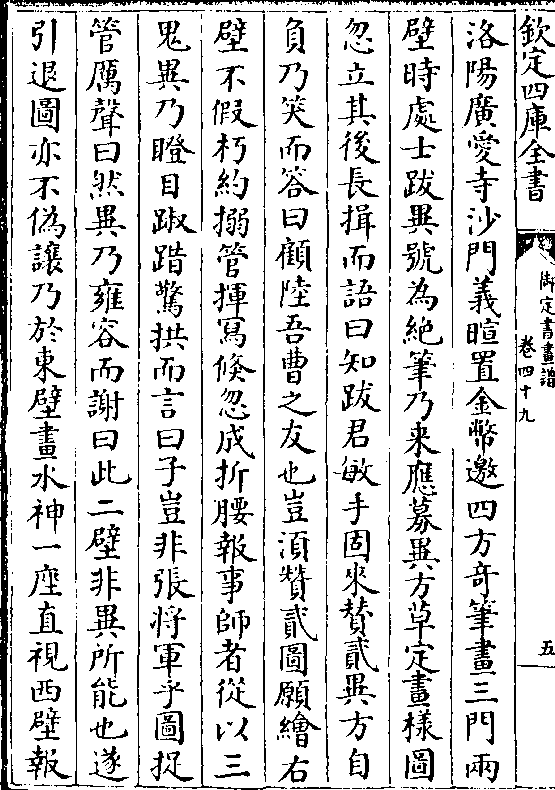 欽定四庫全書
御定書畫譜
卷四十九
五
洛陽廣愛寺沙門義暄置金幣邀四方竒筆畫三門兩
壁時處士跋異號為絶筆乃来應募異方草定畫樣圖
忽立其後長揖而語曰知跋君敏手固來賛貳異方自
負乃笑而答曰顧陸吾曹之友也豈湏賛貳圖願繪右
壁不假朽約搦管揮寫倏忽成折腰報事師者從以三
鬼異乃瞪目踧踖驚拱而言曰子豈非張将軍乎圖捉
管厲聲曰然異乃雍容而謝曰此二壁非異所能也遂
引退圖亦不偽讓乃於東壁畫水神一座直視西壁報